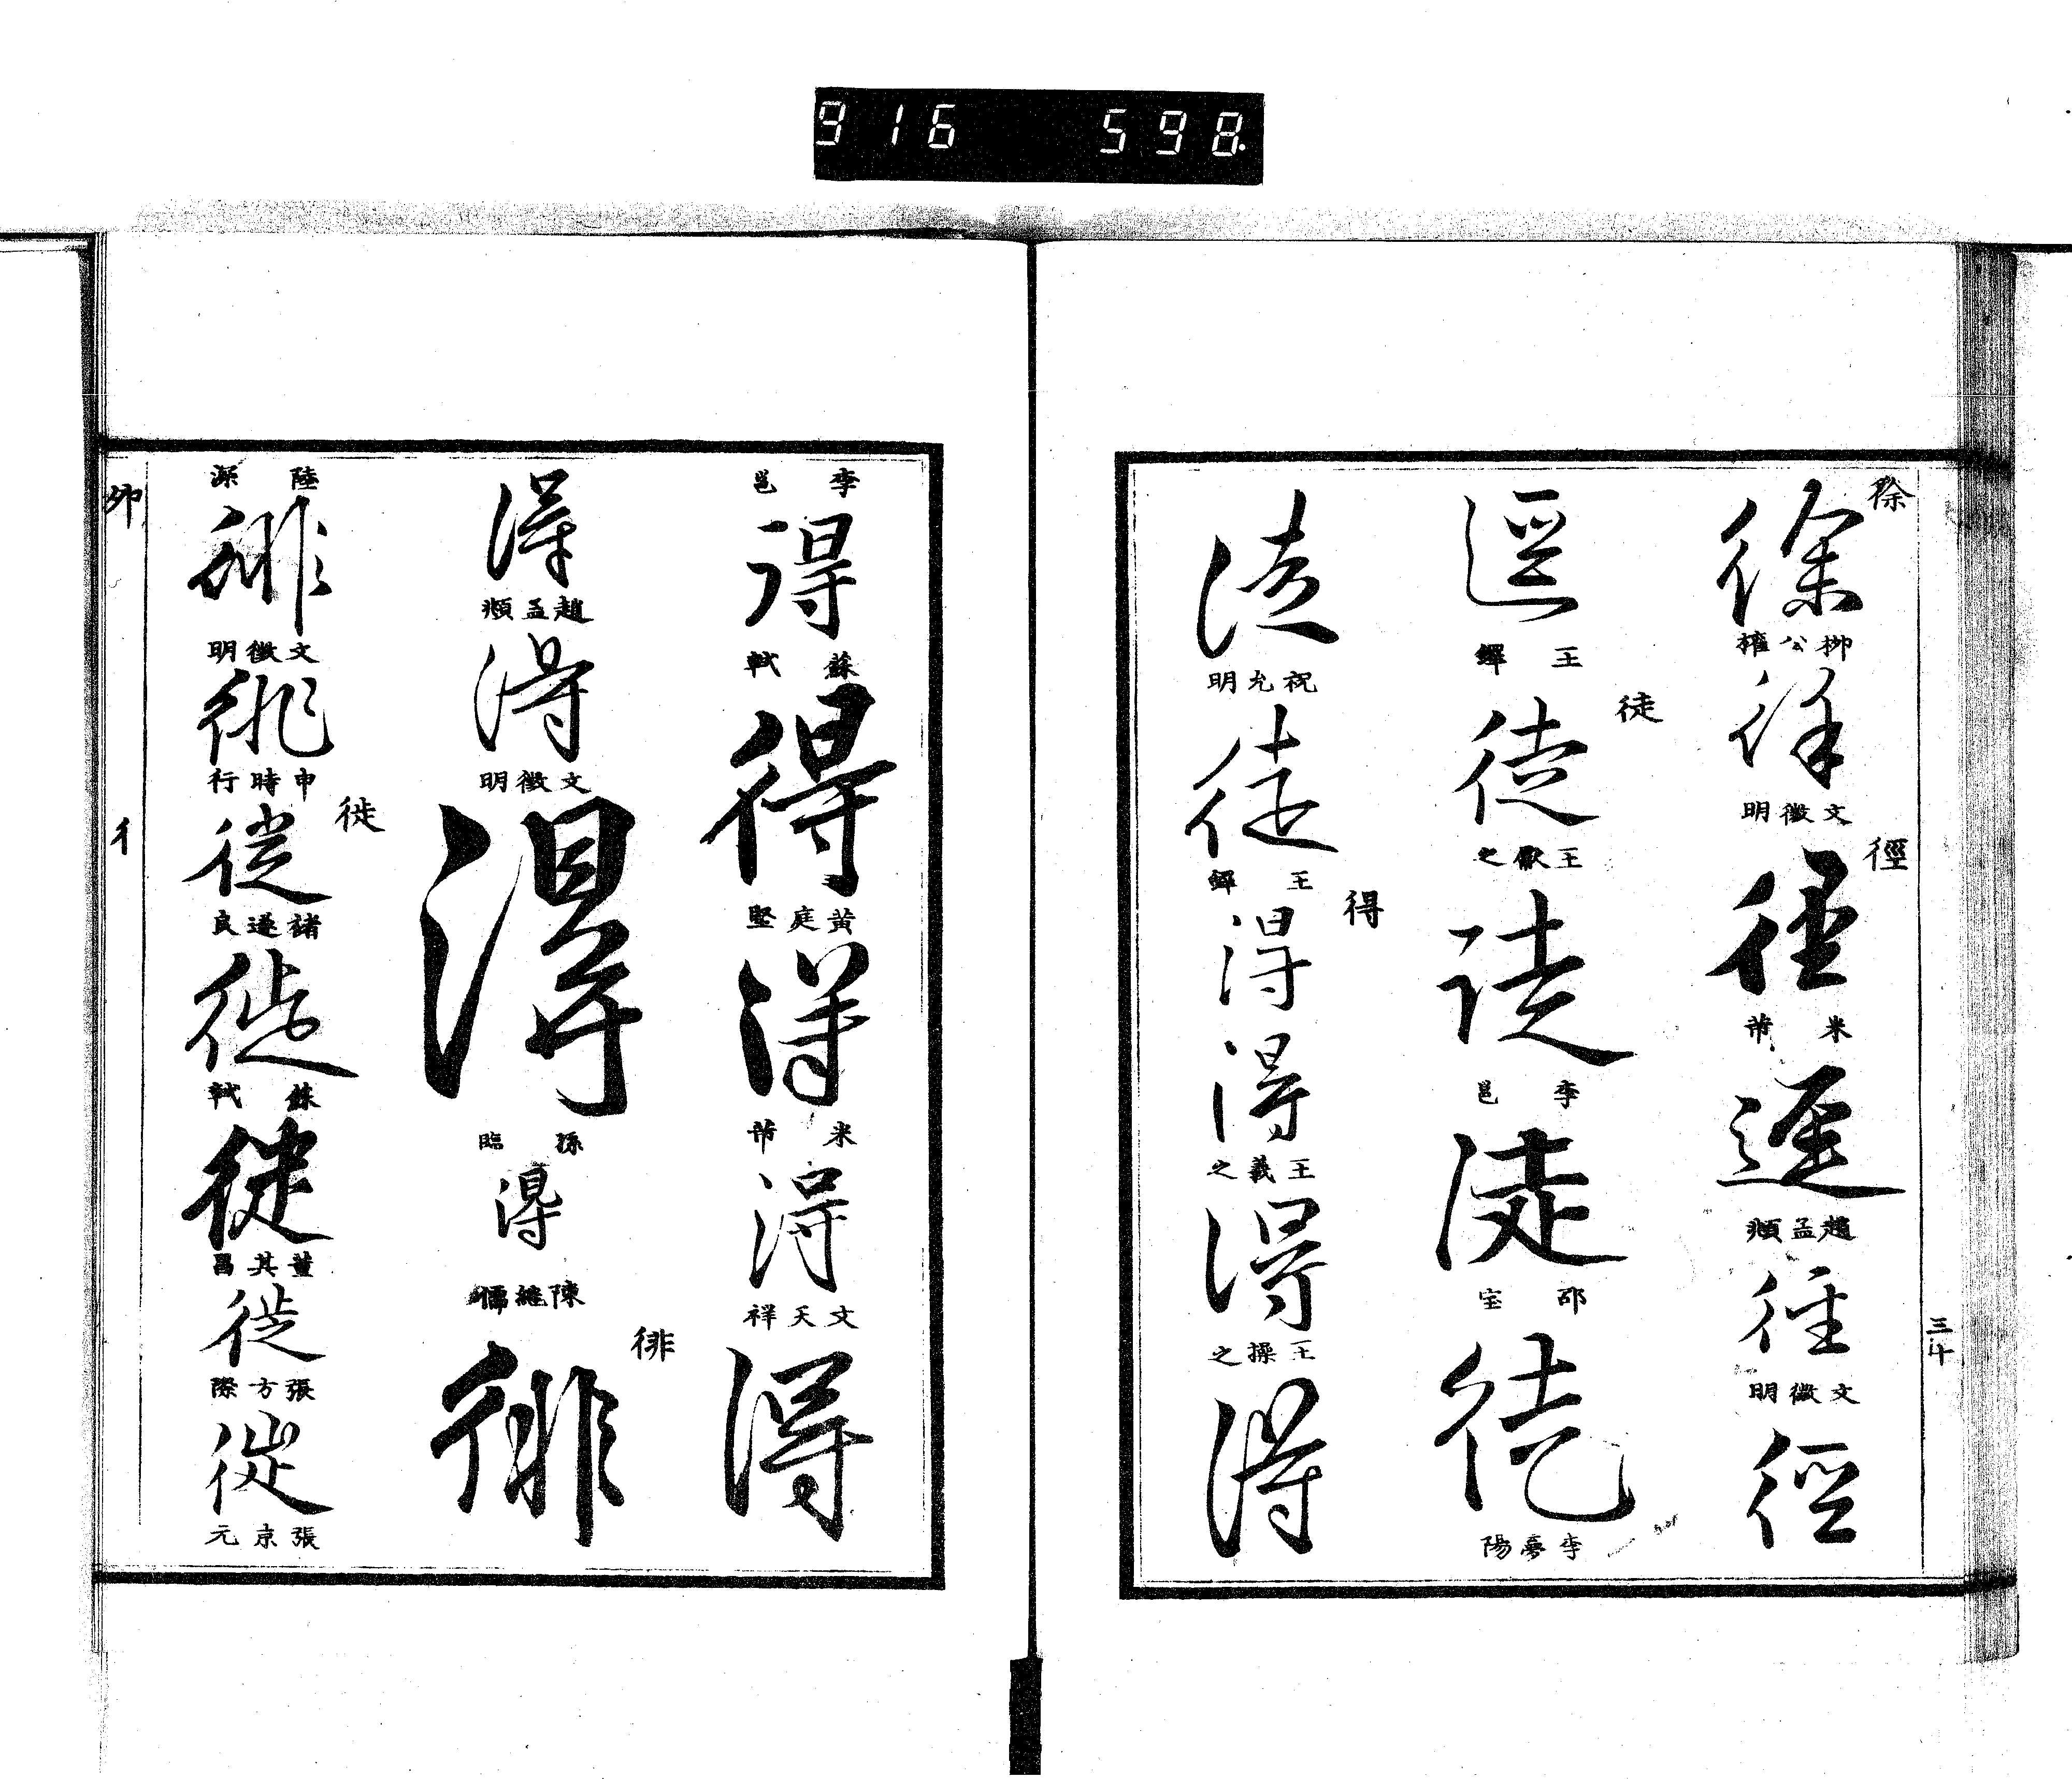 916 598
徐
徐
柳公權
徐
文徵明
徑
徑
米芾
逕
趙孟頫
徑
文徵明
徑
三十
逕
王鐸
徒
徒
王獻之
徒
李邕
徒
邵宝
徒
李夢陽
徒
祝允明
徒
王鐸
得
得
得
王羲之
得
王操之
得
李邕
得
蘇軾
得
黄庭堅
得
米芾
得
文天祥
得
得
趙孟頫
得
文徵明
得
孫臨
得
陳継儒
徘
徘
陸深
徘
文徵明
徘
申時行
徙
徙
褚遂良
徙
蘇軾
徙
董其昌
徙
張方際
徙
張京元
卯
彳